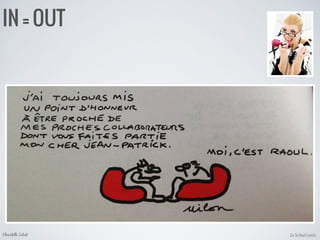 IN = OUT
J'AI TOUJOURS MIS
UN POINT D'HONNEUR
À ÊTRE PROCHE DE
MES PROCHES COLLABORATEURS
DONT VOUS FAITES PARTIE
MON CHER JEAN-PATRICK.
MOI, C'EST RAOUL.